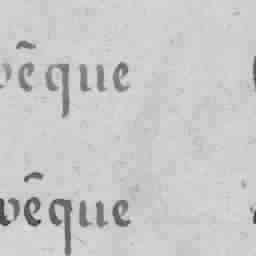 vẽque
vẽque